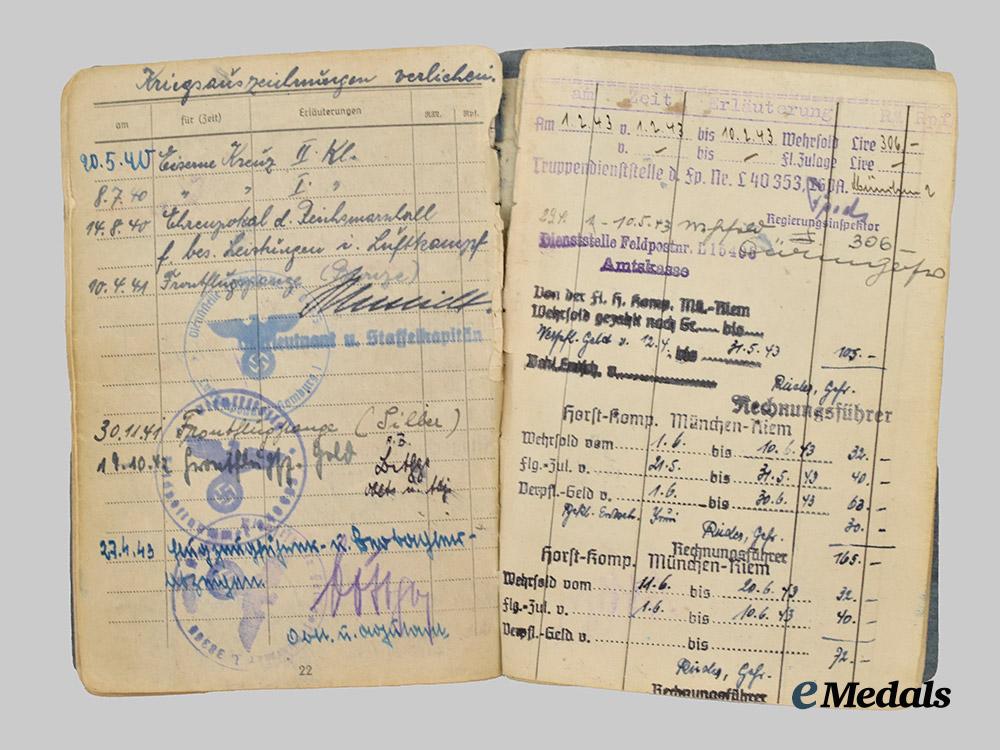 Kriegsauszeichnungen verliehen.
am für (Zeit) Erläuterungen RM. Rpf.
20.5.40 Eiserne Kreuz II. Kl.
8.7.40 " " I. "
14.8.40 Ehrenpokal d. Reichsmarschall
f. bes. Leistungen i. Luftkampf
10.4.41 Frontflugspange (Bronze)
Leutnant u. Staffelkapitän
30.11.41 Frontflugspange (Silber)
19.10.42 Frontflugsp. Gold
27.4.43 Flugzeugführer- u. Beobachter-
abzeichen
Obltn. u. Adjutant
22
am Zeit Erläuterung RM Rpf.
Am 1.2.43 v. 1.2.43 bis 10.2.43 Wehrsold Lire 306,-
v. - bis - Fl. Zulage Lire -
Truppendienststelle d. Fp. Nr. L 40353, LGPA. München 2
Regierungsinspektor
- 10.5.43 Wehrsold 306-
Dienststelle Feldpostnr. L 15406
Amtskasse
Von der Fl. H. Komp. Mü.-Riem
Wehrsold gezahlt nach Gr. bis
Verpfl. Geld v. 12.4. bis 31.5.43 105.-
Rüdes, Gefr.
Rechnungsführer
Horst-Komp. München-Riem
Wehrsold vom 1.6. bis 10.6.43 32.-
Flg.-Zul. v. 21.5. bis 31.5.43 40.-
Verpfl.-Geld v. 1.6. bis 30.6.43 63.-
Juni 30.-
Rüdes, Gefr. 165.-
Rechnungsführer
Horst-Komp. München-Riem
Wehrsold vom 11.6. bis 20.6.43 32.-
Flg.-Zul. v. 1.6. bis 10.6.43 40.-
Verpfl.-Geld v. bis 72.-
Rüdes, Gefr.
Rechnungsführer
eMedals